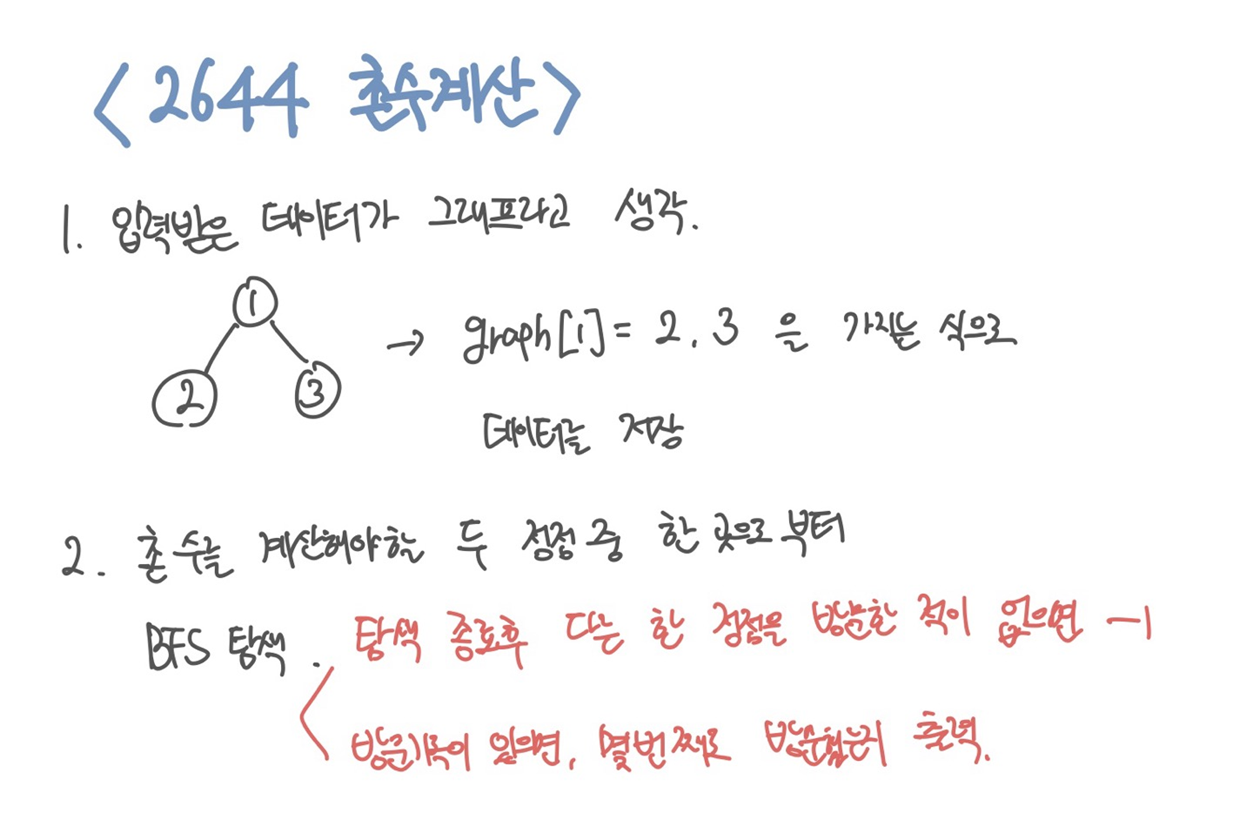 <2644 촌수계산>
1. 입력받은 데이터가 그래프라고 생각.
1
2 3
→ graph[1] = 2, 3 을 가지는 식으로
데이터를 저장
2. 촌수를 계산해야할 두 정점 중 한 곳으로 부터
BFS 탐색. 탐색 종료후 다른 한 정점을 방문한 적이 없으면 -1
방문기록이 있으면, 몇번째로 방문했는지 출력.